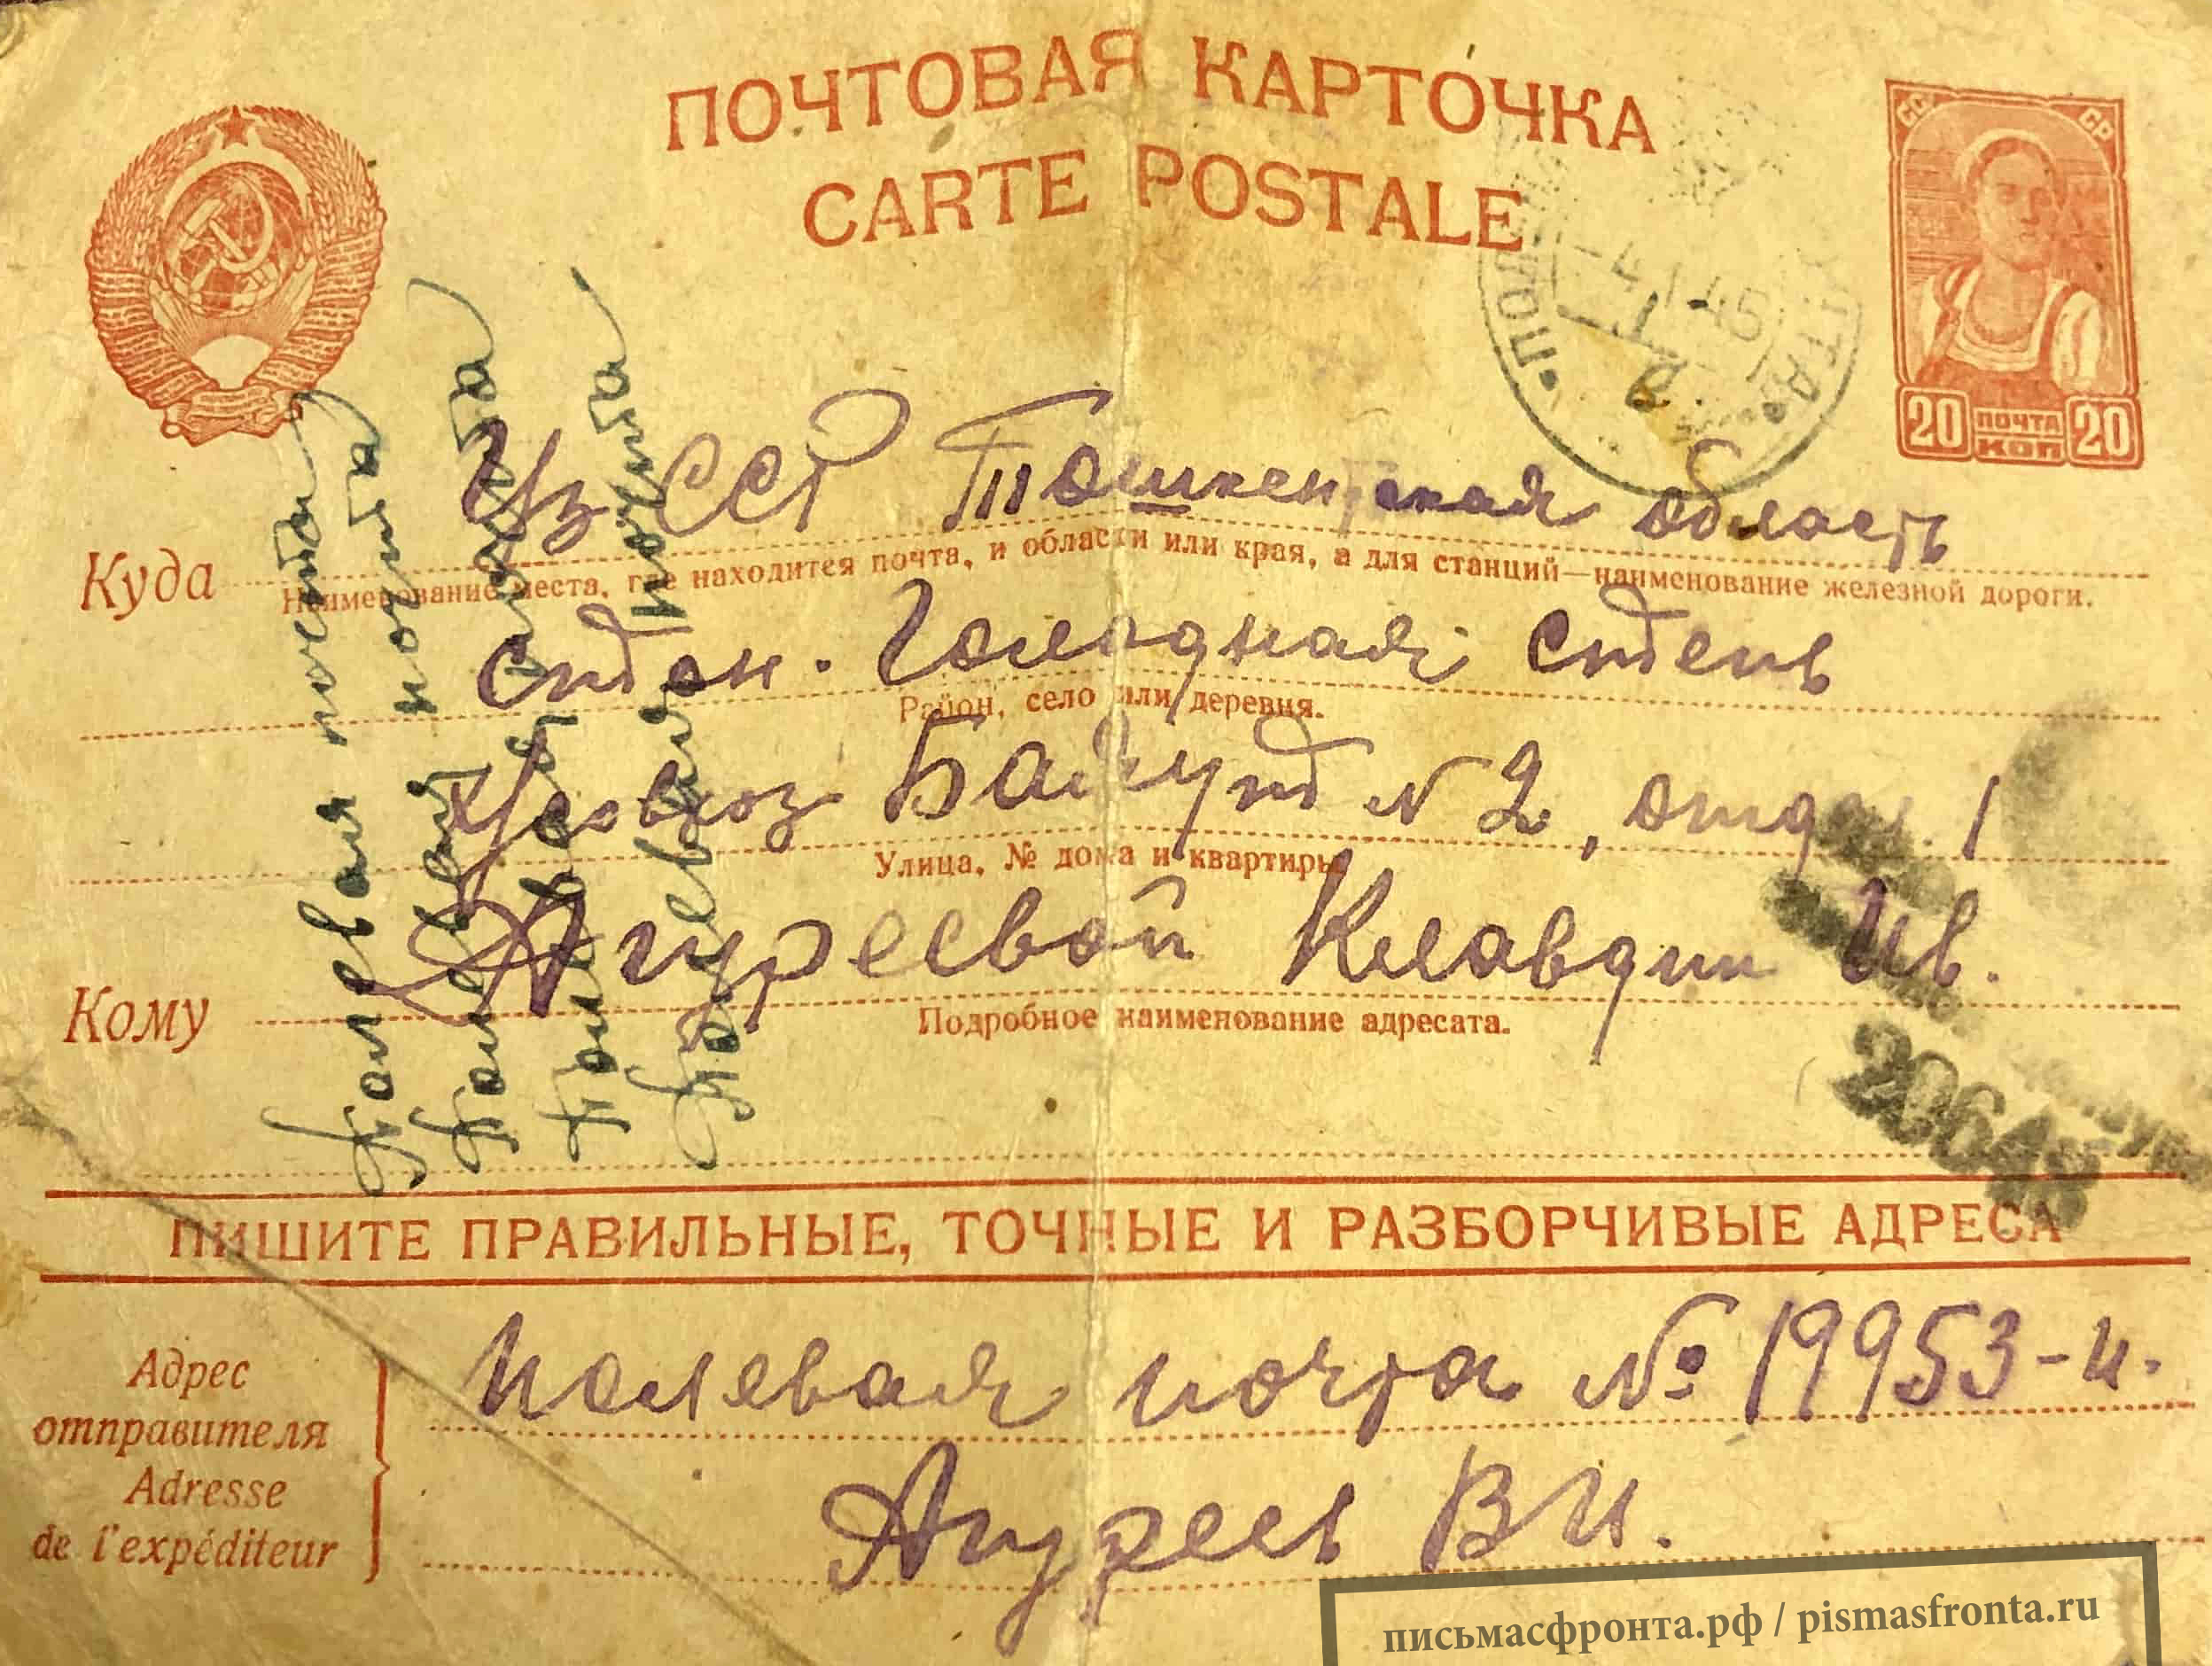 ПОЧТОВАЯ КАРТОЧКА
CARTE POSTALE
СС СР
20 ПОЧТА КОП 20
Куда Уз ССР Ташкентская область
Наименование места, где находится почта, и области или края, а для станций—наименование железной дороги.
стан. Голодная степь
Район, село или деревня.
Совхоз Баяут № 2, отдел. 1
Улица, № дома и квартиры
Кому Андреевой Клавдии Ив.
Подробное наименование адресата.
Полевая почта
Полевая почта
Полевая почта
Полевая почта
20648
ПИШИТЕ ПРАВИЛЬНЫЕ, ТОЧНЫЕ И РАЗБОРЧИВЫЕ АДРЕСА
Адрес отправителя
Adresse de l'expéditeur
Полевая почта № 19953-и.
Андреев В И.
письмасфронта.рф / pismasfronta.ru